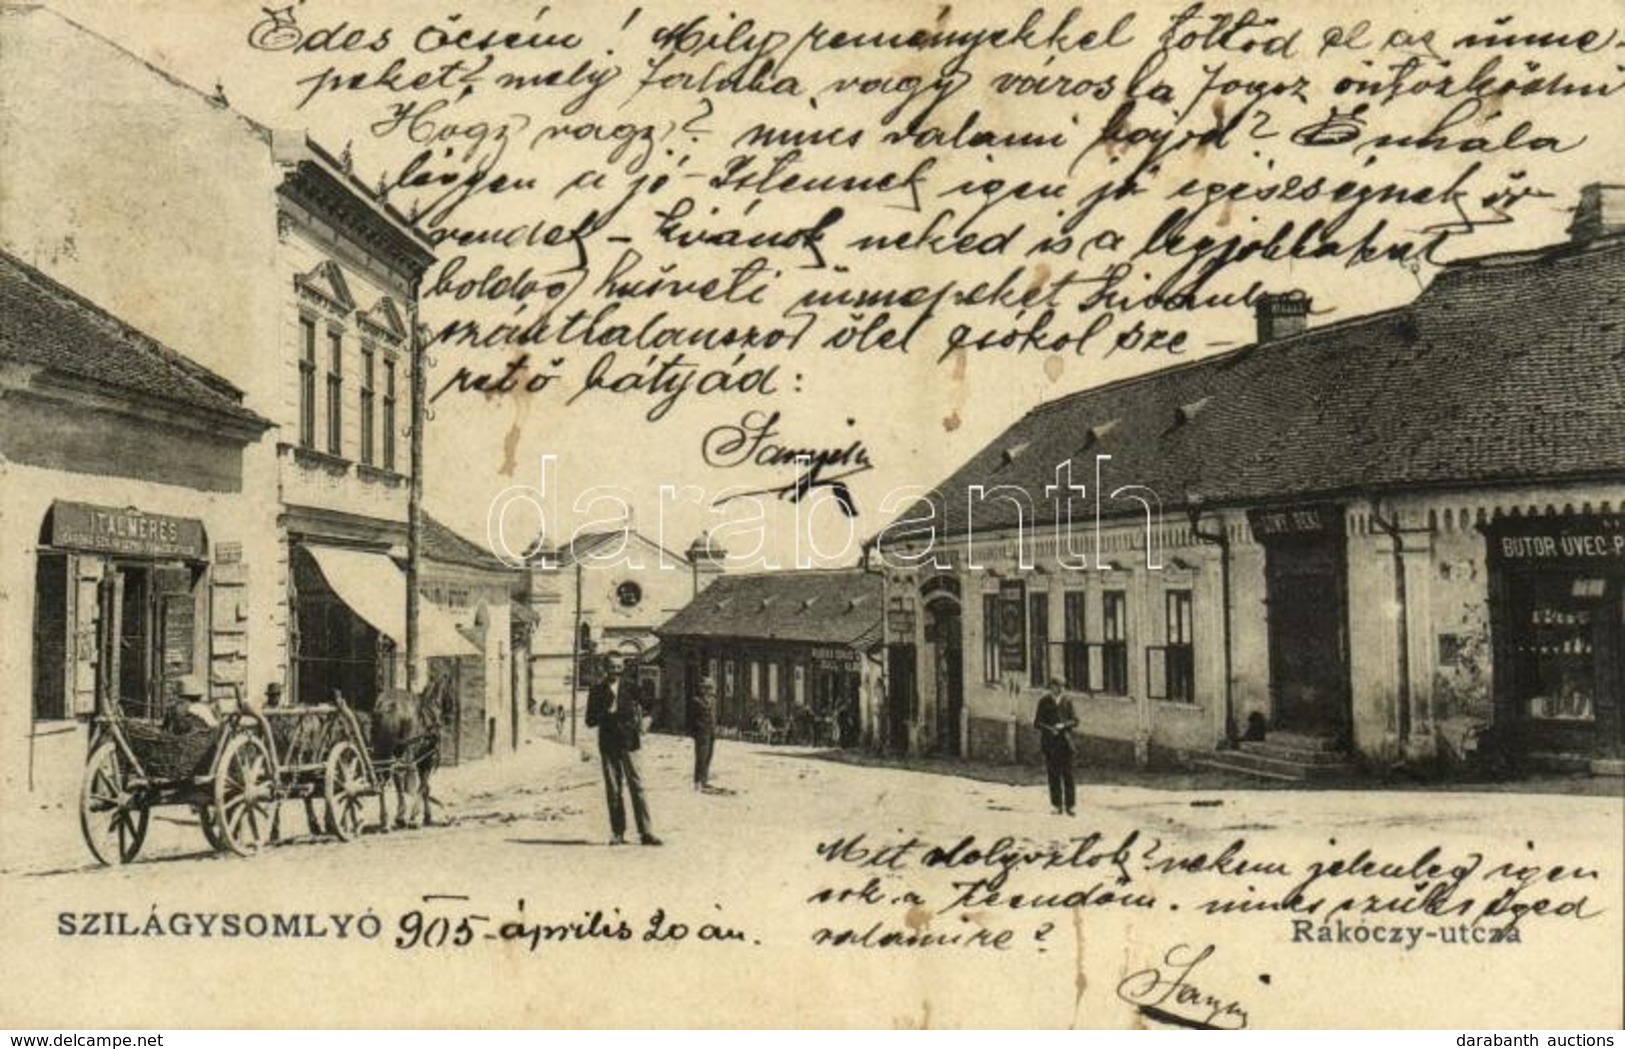 Édes öcsém! Mily reményekkel töltöd el az ünne-
peket? mely faluba vagy városba fogsz öntözködni
Hogy vagy? nincs valami bajod? Én hála
légyen a jó-Istennek igen jó egészségnek ör
vendek – Kívánok neked is a legjobbakat
boldog húsvéti ünnepeket kívánva
számtalanszor ölel csókol sze-
rető bátyád:
ITALMÉRÉS
BUTOR ÜVEG P
darabanth
Mit dolgoztok? nekem jelenleg igen
sok a teendőm. nincs szükséged
valamire?
SZILÁGYSOMLYÓ 905-április 20 án.
Rákóczy-utcza
darabanth.com
darabanth auctions